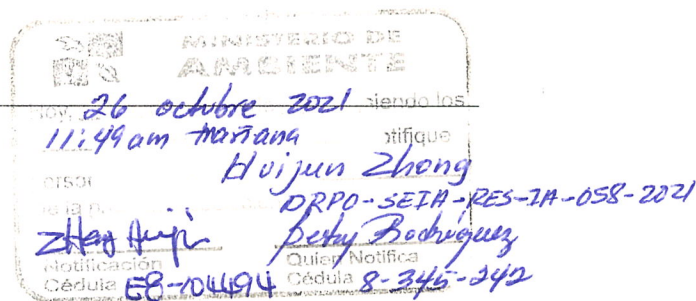 MINISTERIO DE
AMBIENTE
Hoy, 26 octubre 2021 siendo los
11:49 am mañana notifique
Huijun Zhong
DRPO-SEIA-RES-IA-058-2021
Betsy Rodríguez
Notificación Quien Notifica
Cédula E8-104494 Cédula 8-345-242